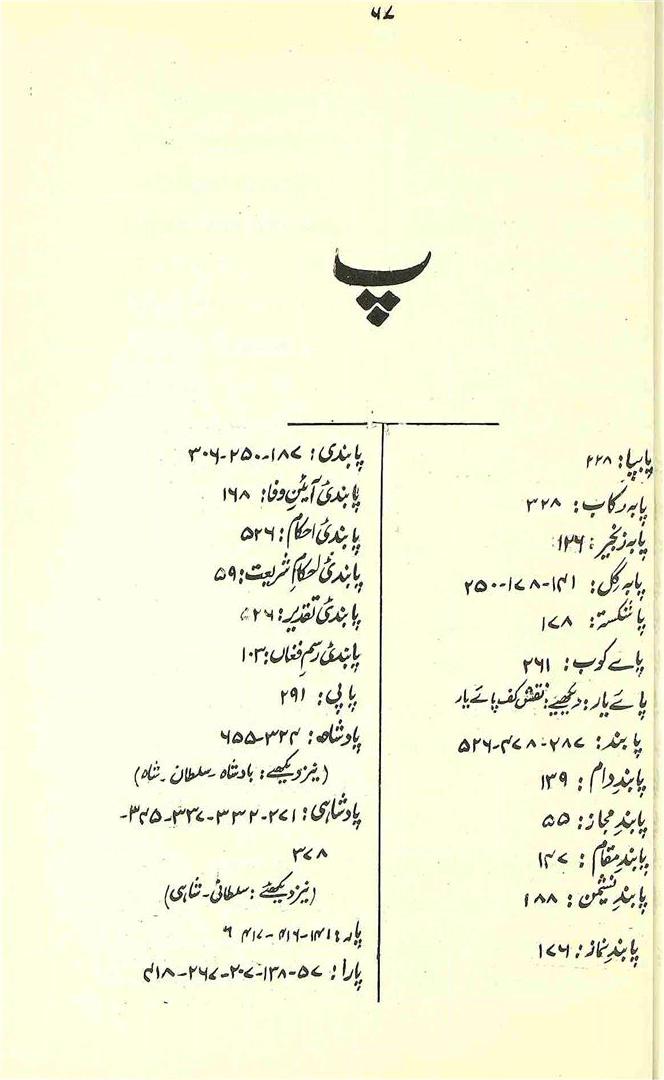 ۶۷
پ
پا بپا: ۲۲۸
پا بہ رکاب: ۳۲۸
پا بہ زنجیر: ۱۲۶
پا بہ گِل: ۱۴۱-۱۷۸-۲۵۰
پا شکستہ: ۱۷۸
پاے کوب: ۲۶۱
پائے یار: دیکھیے: نقش کف پائے یار
پابند: ۲۸۷-۴۷۸-۵۲۶
پابندِ دام: ۱۳۹
پابندِ مجاز: ۵۵
پابندِ مقام: ۱۴۷
پابندِ نشیمن: ۱۸۸
پابندِ نماز: ۱۷۶
پابندی: ۱۸۷-۲۵۰-۳۰۶
پابندیٔ آئینِ وفا: ۱۶۸
پابندیٔ احکام: ۵۲۶
پابندیٔ احکامِ شریعت: ۵۹
پابندیٔ تقدیر: ۲۶
پابندیٔ رسمِ فغاں: ۱۰۳
پاپی: ۲۹۱
پادشاہ: ۳۲۴-۶۵۵
(نیز دیکھیے: بادشاہ - سلطان - شاہ)
پادشاہی: ۲۷۱-۳۳۲-۳۳۷-۳۴۵-
۳۷۸
(نیز دیکھئے: سلطانی - شاہی)
پار: ۱۴۱-۴۱۶-۴۱۷
پارا: ۵۷-۱۳۸-۲۰۷-۲۶۷-۴۱۸